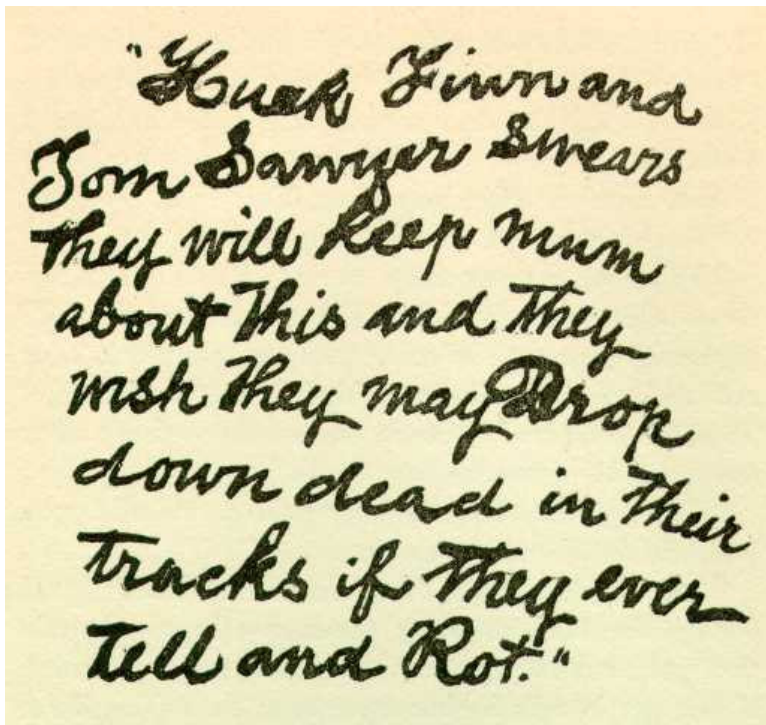 "Huck Finn and
Tom Sawyer swears
they will keep mum
about This and They
wish They may Drop
down dead in Their
tracks if They ever
Tell and Rot."